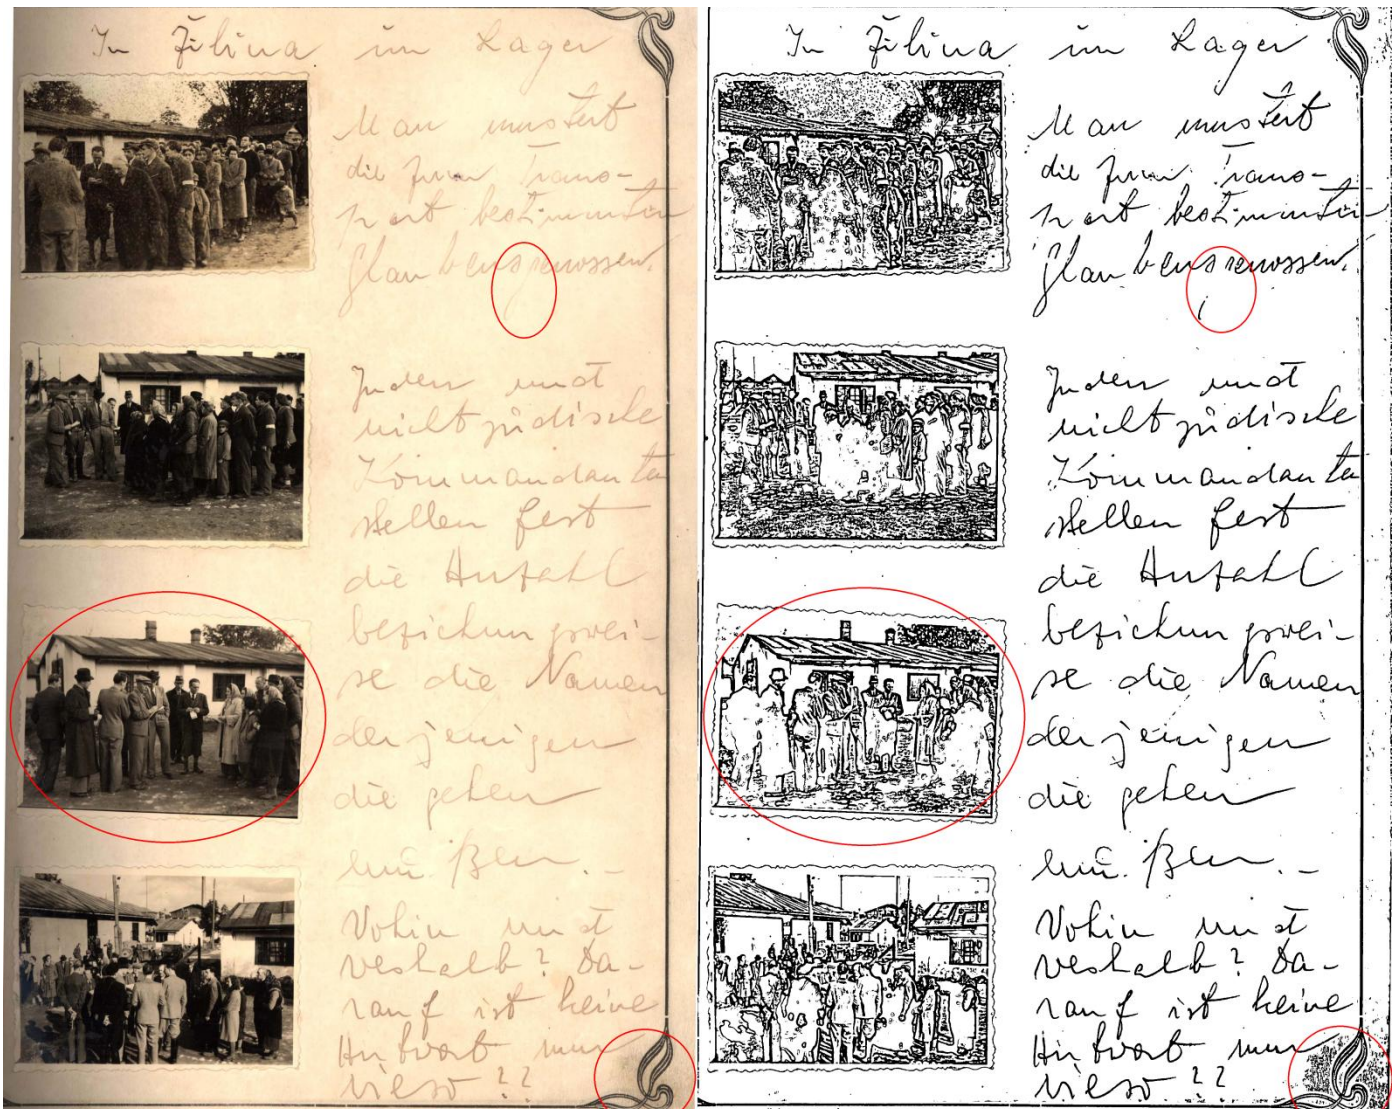 In Žilina im Lager
Man mustert
die zum Trans-
port bestimmten
Glaubensgenossen.
Juden und
nichtjüdische
Kommandanten
stellen fest
die Anzahl
beziehungswei-
se die Namen
derjenigen
die gehen
müßen. -
Vohin und
veshalb? Da-
rauf ist keine
Antvort nur
vieso??
In Žilina im Lager
Man mustert
die zum Trans-
port bestimmten
Glaubensgenossen.
Juden und
nichtjüdische
Kommandanten
stellen fest
die Anzahl
beziehungswei-
se die Namen
derjenigen
die gehen
müßen. -
Vohin und
veshalb? Da-
rauf ist keine
Antvort nur
vieso??